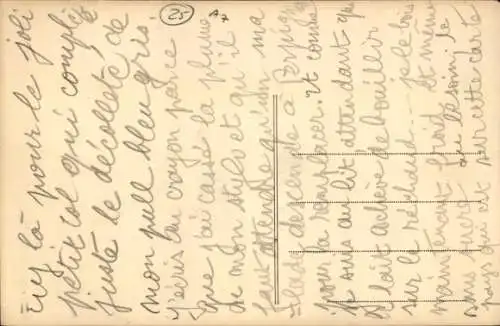 25
là pour le joli
petit col qui complète
juste le décolleté de
mon pull bleu gris.
J'écris au crayon parce
que j'ai cassé la plume
de mon stylo et qu'il
faut attendre qu'un ma
descende à Perpignan
pour la remplacer. Et comme
je suis au lit attendant que
le lait achève de bouillir
sur le réchaud... je le bois
maintenant froid et même
sans sucre au besoin. Je
sur cette carte